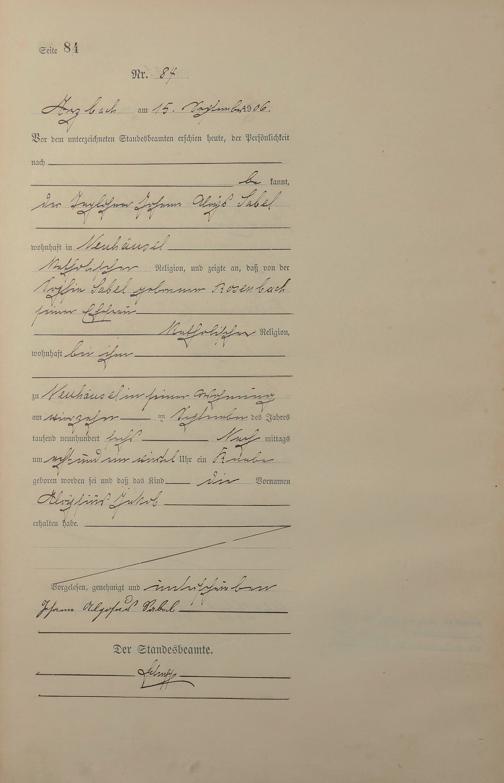 Seite 84
Nr. 84
Arzbach am 15. September 1906.
Vor dem unterzeichneten Standesbeamten erschien heute, der Persönlichkeit
nach
be kannt,
der Taglöhner Johann Aloys Sabel
wohnhaft in Neuhäusel
Katholischer Religion, und zeigte an, daß von der
Sophia Sabel geborenen Rosenbach
seiner Ehefrau
Katholischer Religion,
wohnhaft bei ihm
zu Neuhäusel in seiner Wohnung
am vierzehnten September des Jahres
tausend neunhundert sechs Nach mittags
um acht und ein viertel Uhr ein Knabe
geboren worden sei und daß das Kind die Vornamen
Aloysius Jakob
erhalten habe.
Vorgelesen, genehmigt und unterschrieben
Johann Sabel
Der Standesbeamte.